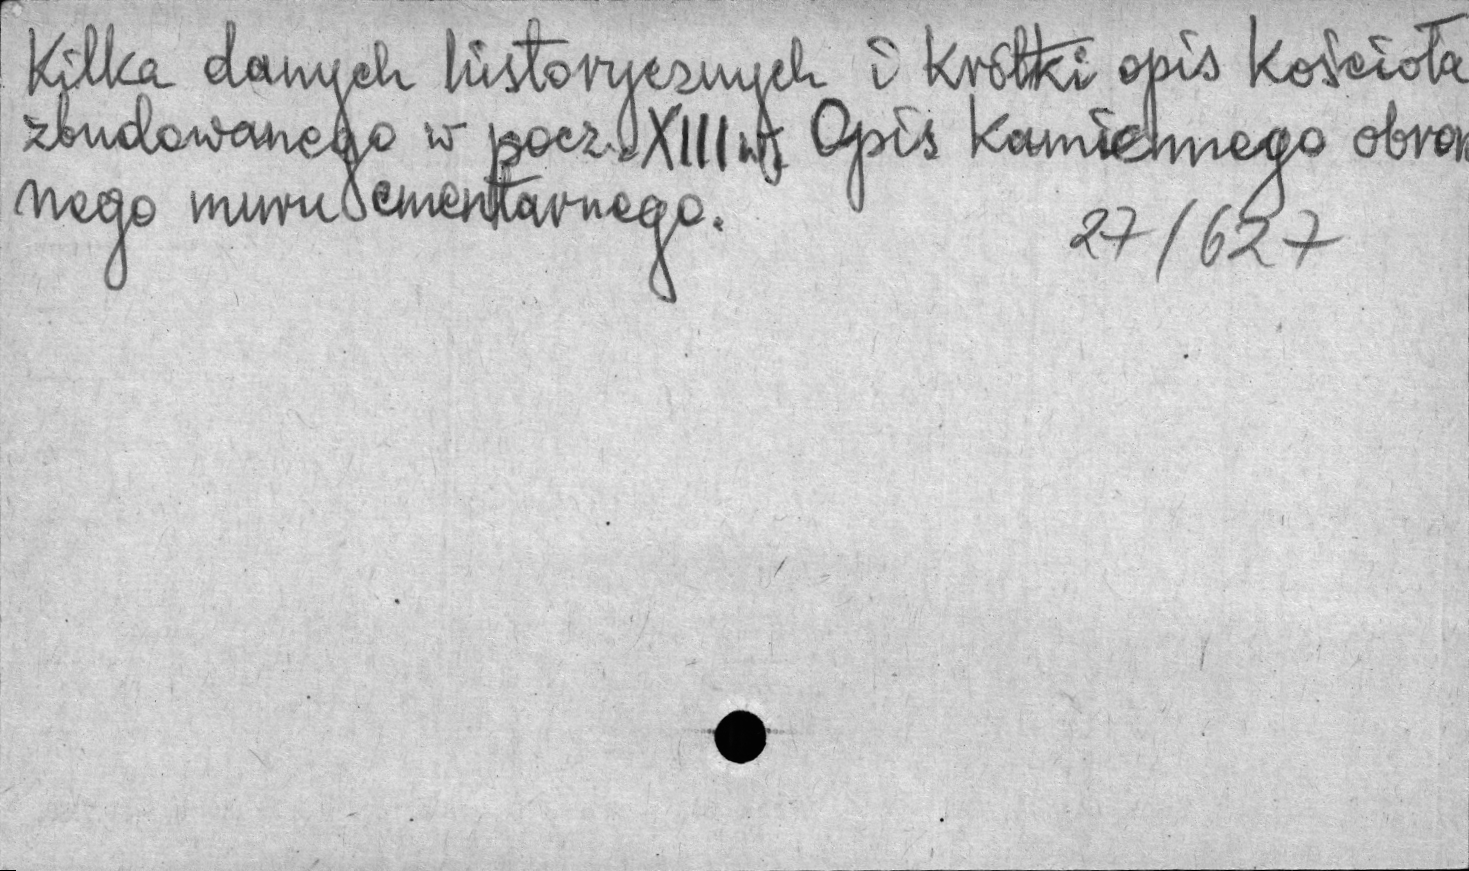 Kilka danych historycznych i krótki opis kościoła
zbudowanego w pocz. XIII w. Opis kamiennego obron
nego muru cmentarnego.
27/627